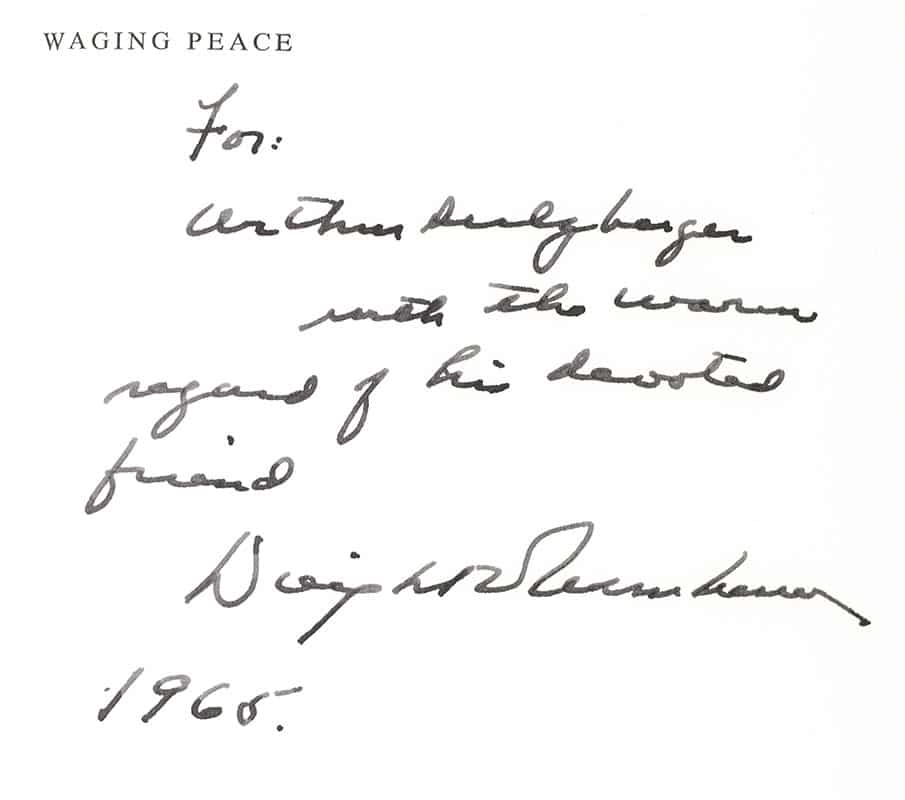 WAGING PEACE
For:
Arthur Sulzberger
with the warm
regard of his devoted
friend
Dwight D Eisenhower
1965.